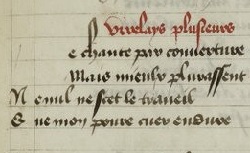 Pvirelays plusieurs
e chante par couverture
Mais mieulx plurassent
Ne nul ne scet le traveil
Que mon povre cuer endure